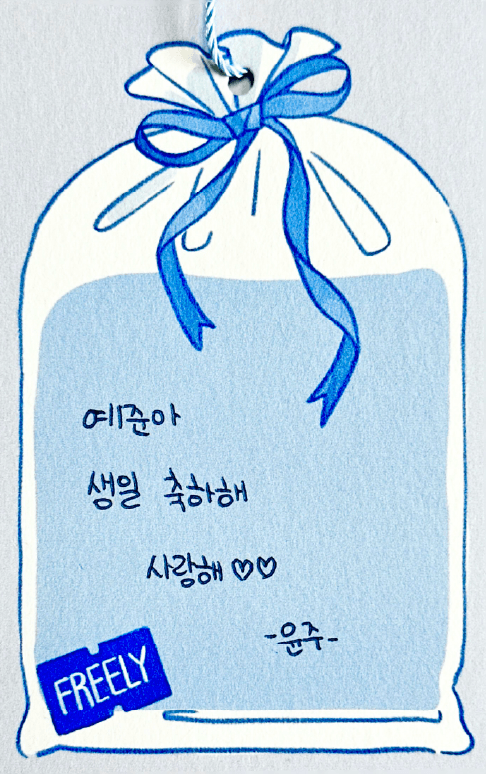 예준아
생일 축하해
사랑해 ♡♡
-윤주-
FREELY